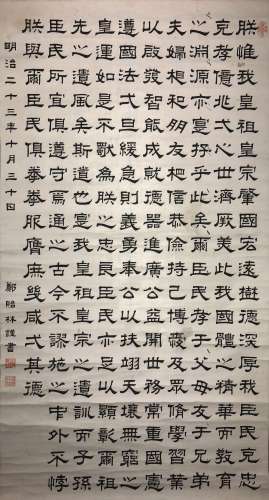 朕惟我皇祖皇宗肇國宏遠樹德深厚我臣民克忠
克孝億兆一心世世濟厥美此我國體之精華而教育
之淵源亦實存乎此矣爾臣民孝于父母友于兄弟
夫婦相和朋友相信恭儉持己博愛及衆修學習業
以啟發智能成就德器進廣公益開世務常重國憲
遵國法一旦緩急則義勇奉公以扶翼天壤無窮之
皇運如是不獨為朕之忠良臣民亦足以顯彰爾祖
先之遺風矣斯道也實我皇祖皇宗之遺訓而子孫
臣民所宜俱遵守焉通之古今不謬施之中外不悖
朕與爾臣民俱拳拳服膺庶幾咸一其德
明治二十三年十月三十日
鄭貽林謹書